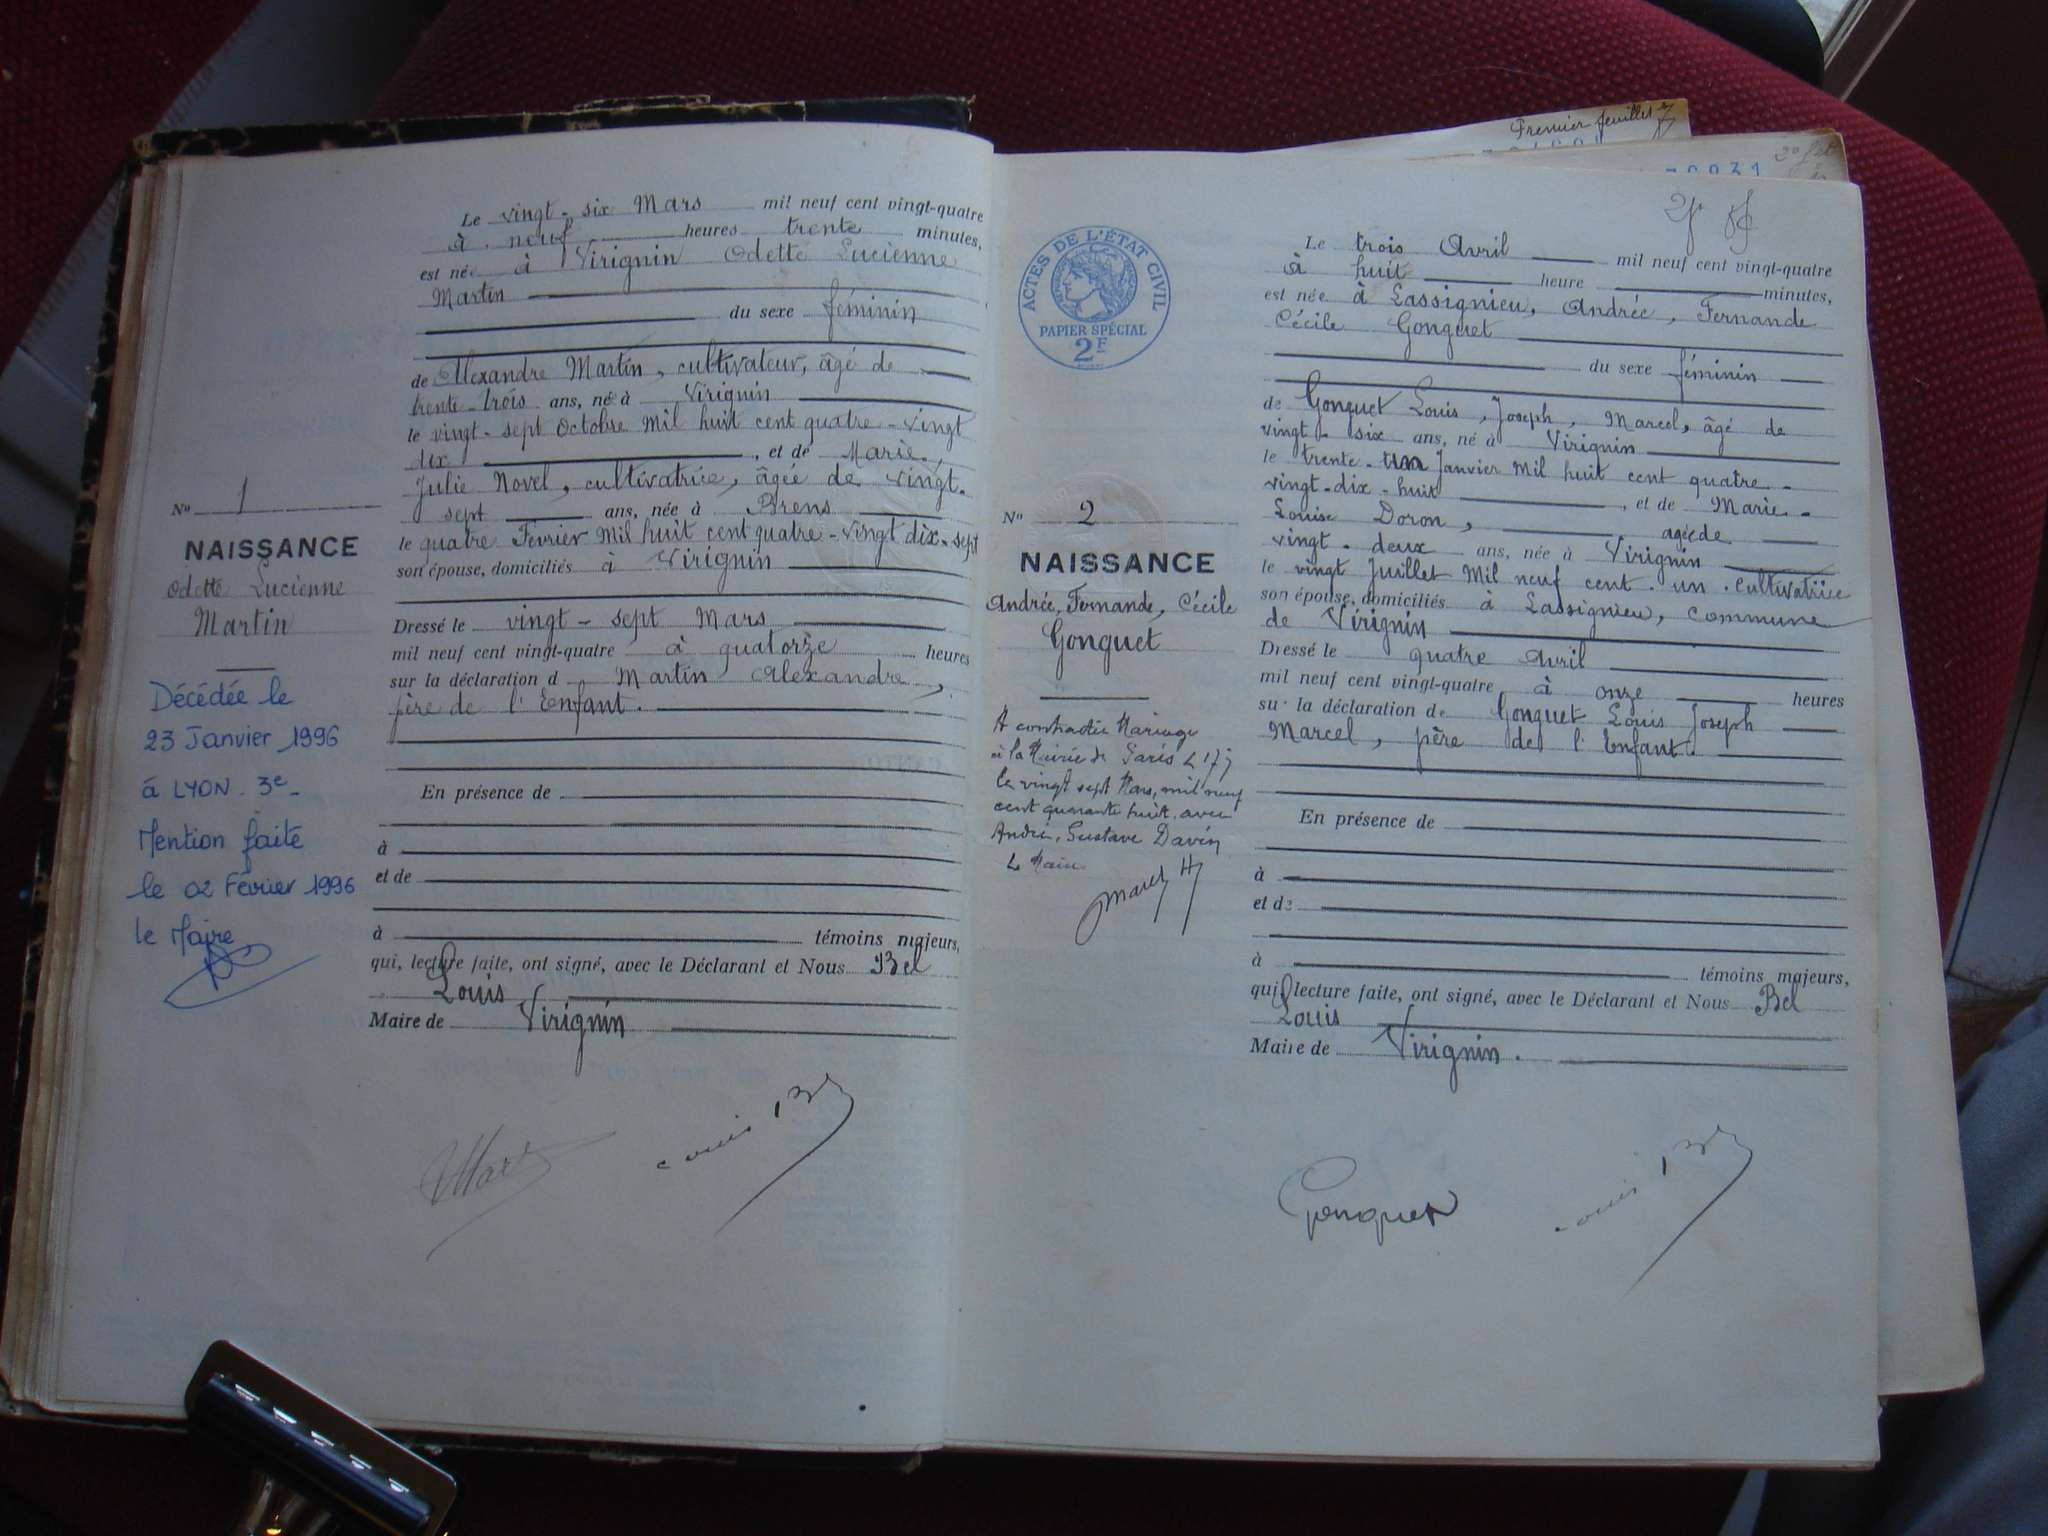 Le vingt-six Mars mil neuf cent vingt-quatre
à neuf heures trente minutes,
est née à Virignin Odette Lucienne
Martin
du sexe féminin
de Alexandre Martin, cultivateur, âgé de
trente-trois ans, né à Virignin
le vingt-sept Octobre Mil huit cent quatre-vingt
dix, et de Marie,
Julie Novel, cultivatrice, âgée de vingt-
sept ans, née à Brens
le quatre Février Mil huit cent quatre-vingt dix-sept
son épouse, domiciliés à Virignin
Dressé le vingt-sept Mars
mil neuf cent vingt-quatre à quatorze heures
sur la déclaration d Martin Alexandre,
père de l'Enfant.
En présence de
à
et de
à témoins majeurs,
qui, lecture faite, ont signé, avec le Déclarant et Nous Bel
Louis
Maire de Virignin
Louis Bel
No 1
NAISSANCE
Odette Lucienne
Martin
Décédée le
23 Janvier 1996
à LYON. 3e-
Mention faite
le 02 Février 1996
le Maire
Premier feuillet
ACTES DE L'ÉTAT CIVIL
PAPIER SPÉCIAL
2F
Le trois Avril mil neuf cent vingt-quatre
à huit heure minutes,
est née à Lassignieu, Andrée, Fernande
Cécile Gonguet
du sexe féminin
de Gonguet Louis, Joseph, Marcel, âgé de
vingt-six ans, né à Virignin
le trente-un Janvier Mil huit cent quatre-
vingt-dix-huit, et de Marie-
Louise Doron, agée de
vingt-deux ans, née à Virignin
le vingt Juillet Mil neuf cent un. cultivatrice
son épouse, domiciliés à Lassignieu, commune
de Virignin
Dressé le quatre Avril
mil neuf cent vingt-quatre à onze heures
sur la déclaration de Gonguet Louis Joseph
Marcel, père de l'Enfant
En présence de
à
et de
à témoins majeurs,
qui, lecture faite, ont signé, avec le Déclarant et Nous Bel
Louis
Maire de Virignin.
Gonguet Louis Bel
No 2
NAISSANCE
Andrée, Fernande, Cécile
Gonguet
A contracté Mariage
à la Mairie de Paris
le vingt sept Mars, mil neuf
cent quarante huit, avec
André, Gustave Davin
Le Maire